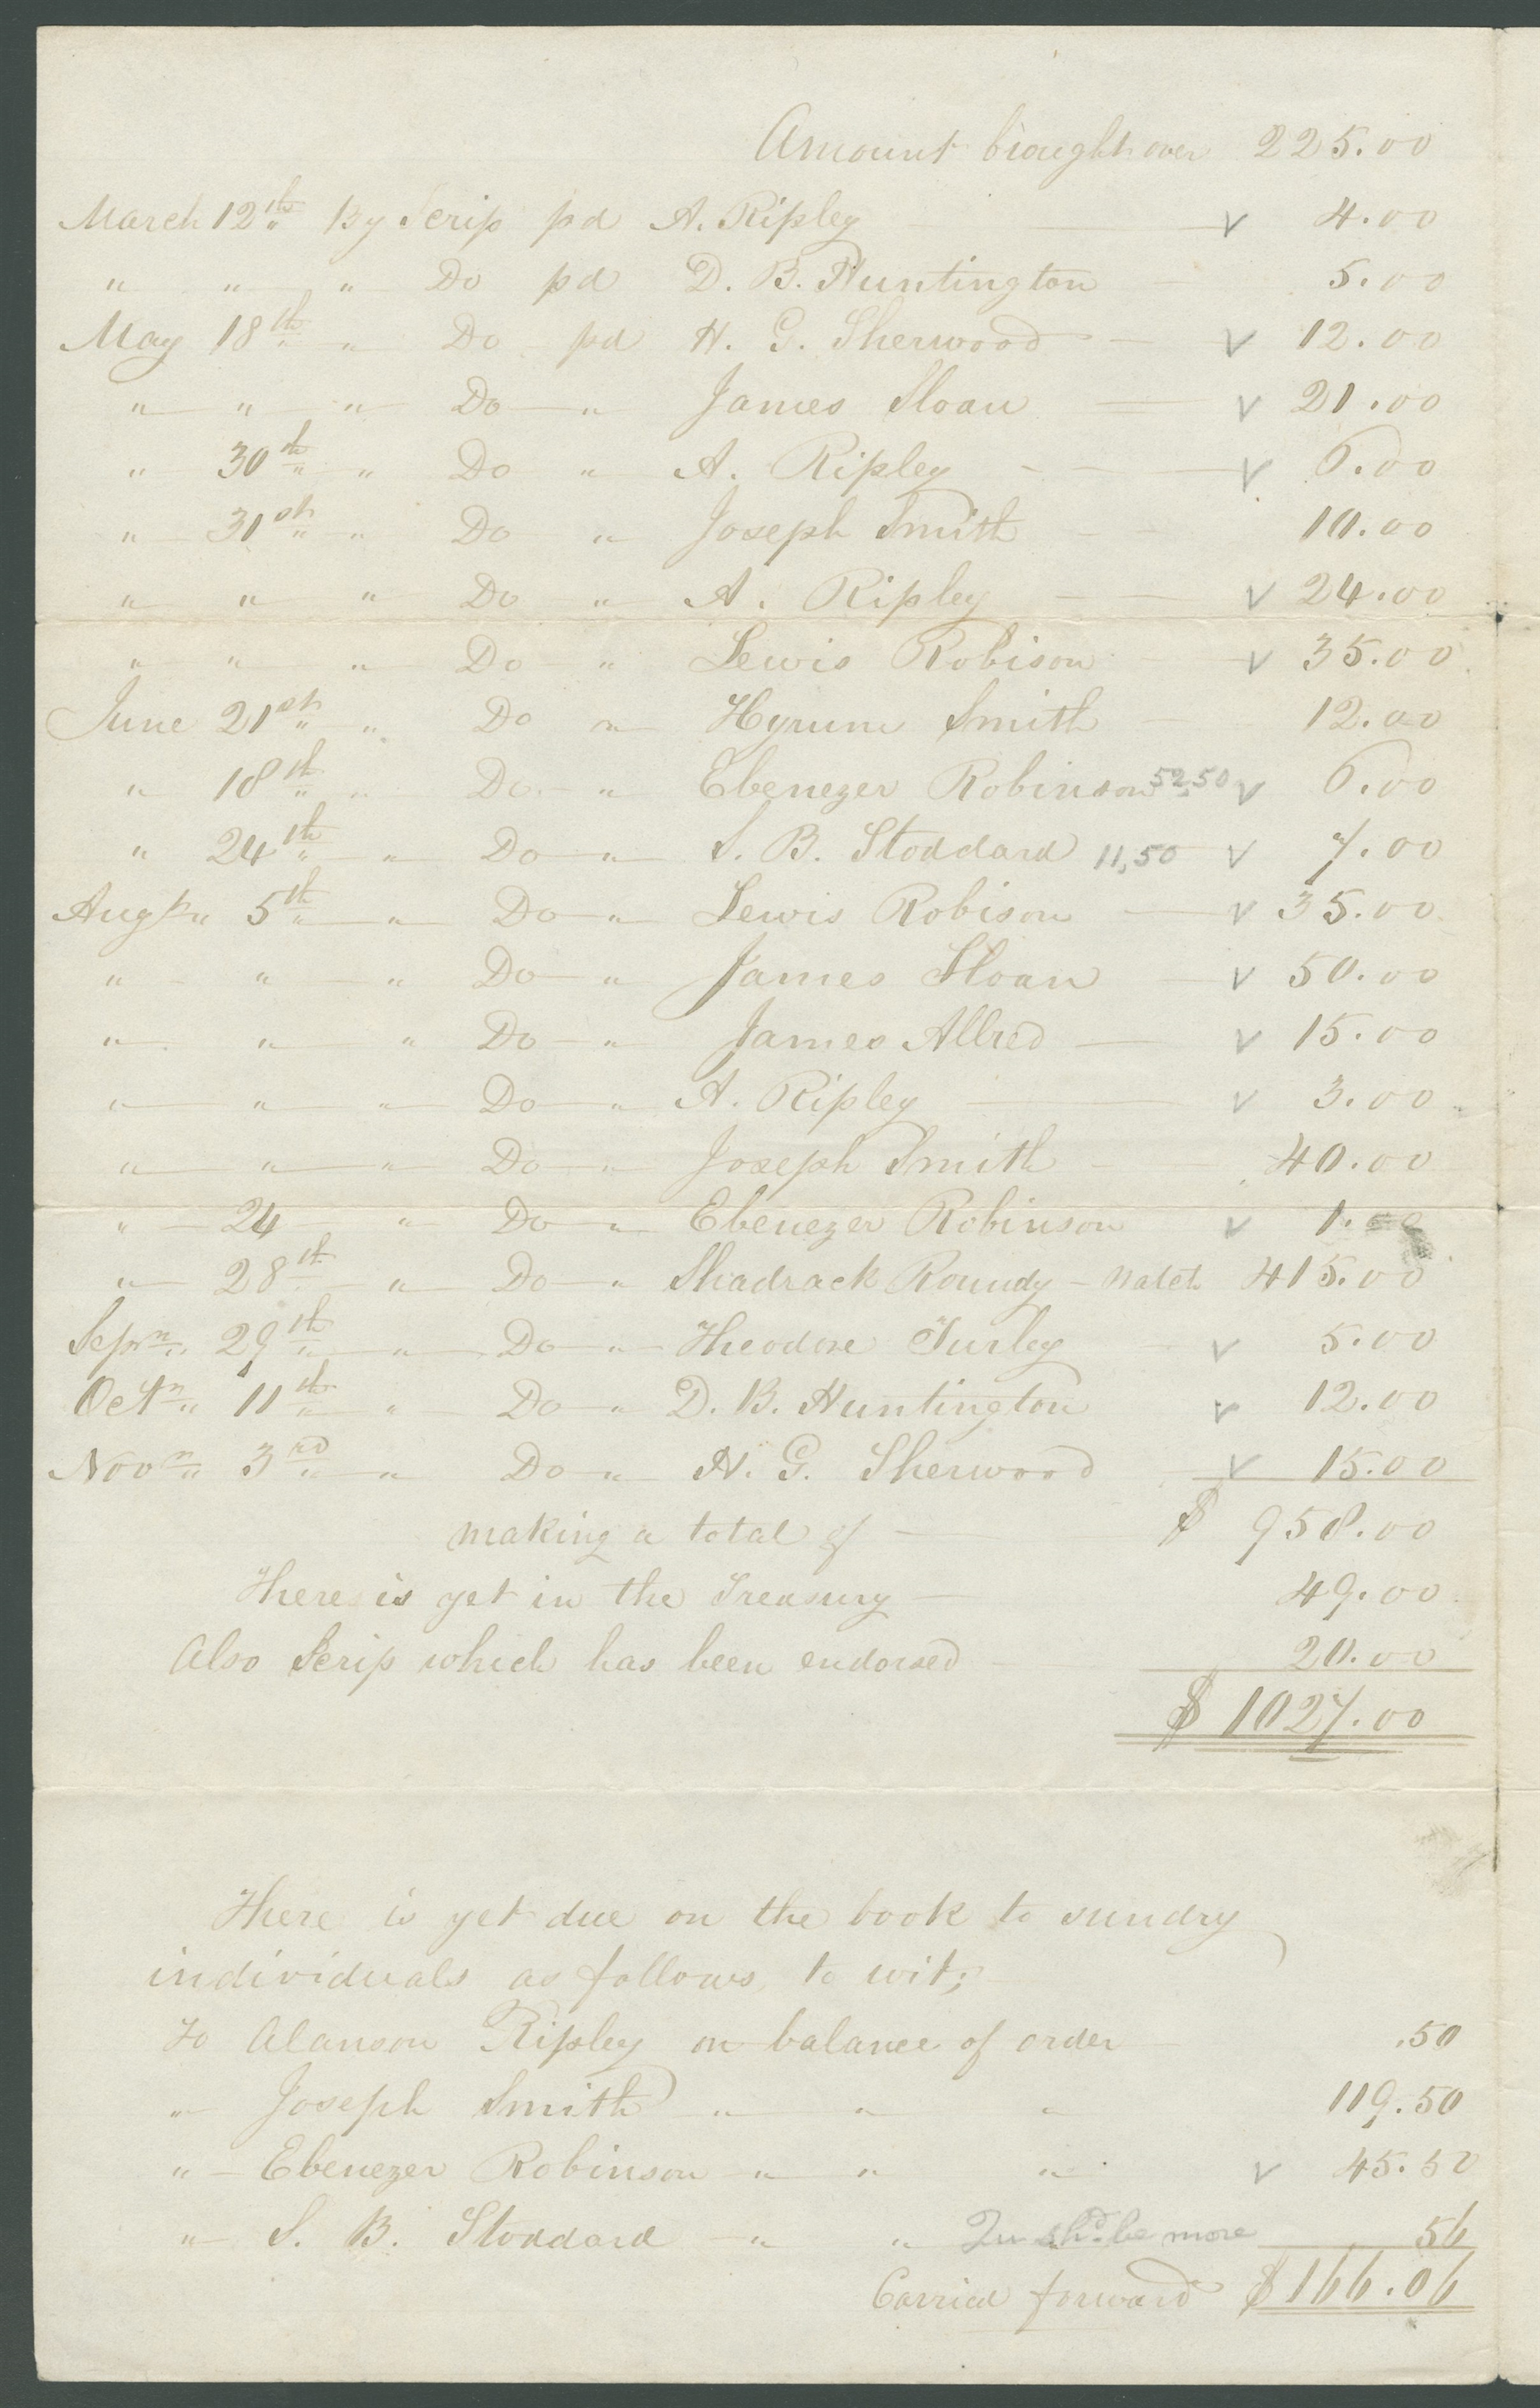 Amount brought over 225.00
March 12th By Scrip pd A. Ripley — v 4.00
" " " Do pd D. B. Huntington — 5.00
May 18th " Do pd H. G. Sherwood — v 12.00
" " " Do " James Sloan — v 21.00
" 30th " Do " A. Ripley — v 6.00
" 31st " Do " Joseph Smith — 10.00
" " " Do " A. Ripley — v 24.00
" " " Do " Lewis Robison — v 35.00
June 21st " Do " Hyrum Smith — 12.00
" 18th " Do " Ebenezer Robinson 52.50 v 6.00
" 24th " Do " S. B. Stoddard 11,50 v 7.00
Augt 5th " Do " Lewis Robison — v 35.00
" " " Do " James Sloan — v 50.00
" " " Do " James Allred — v 15.00
" " " Do " A. Ripley — v 3.00
" " " Do " Joseph Smith — 40.00
" 24 " Do " Ebenezer Robinson v 1.00
" 28th " Do " Shadrack Roundy — watch 415.00
Sepr 29th " Do " Theodore Turley — v 5.00
Octr 11th " Do " D. B. Huntington v 12.00
Novr 3rd " Do " H. G. Sherwood v 15.00
making a total of — $ 958.00
There is yet in the Treasury — 49.00
Also Scrip which has been endorsed — 20.00
$ 1027.00
There is yet due on the book to sundry
individuals as follows, to wit;
To Alanson Ripley on balance of order — .50
" Joseph Smith " " " 119.50
" Ebenezer Robinson " " " v 45.50
" S. B. Stoddard " " shd. be more 56
Carried forward $166.06